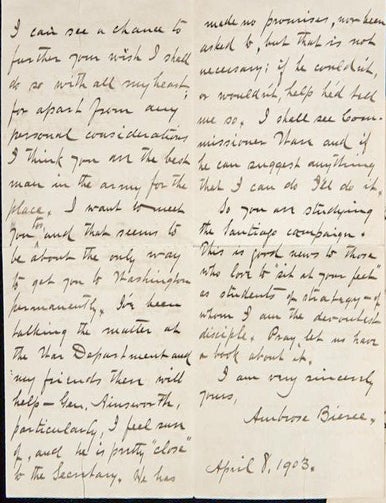 I can see a chance to
further your wish I shall
do so with all my heart,
for apart from any
personal considerations
I think you are the best
man in the army for the
place. I want to meet
you too and that seems to
be about the only way
to get you to Washington
permanently. I've been
talking the matter at
the War Department and
my friends there will
help—Gen. Ainsworth,
particularly, I feel sure
of, and he is pretty "close"
to the Secretary. He has
made no promises, nor been
asked to, but that is not
necessary; if he couldn't,
or wouldn't, help he'd tell
me so. I shall see Com-
missioner Ware and if
he can suggest anything
that I can do I'll do it.
So you are studying
the Santiago campaign.
This is good news to those
who love to "sit at your feet"
as students of strategy—of
whom I am the devoutest
disciple. Pray let us have
a book about it.
I am very sincerely
yours,
Ambrose Bierce.
April 8, 1903.